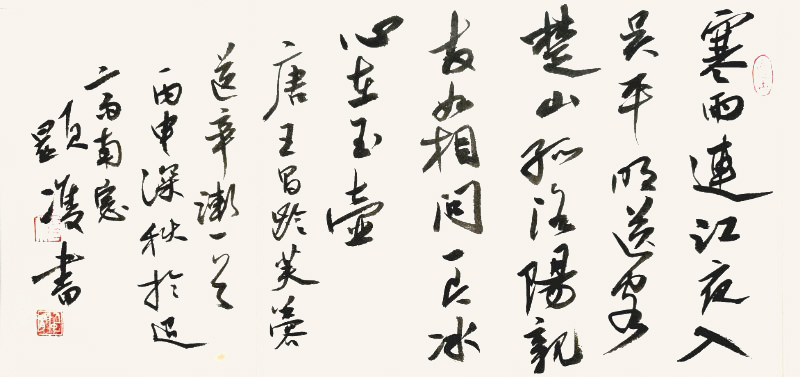 寒雨連江夜入
吴平明送客
楚山孤洛陽親
友如相問一片冰
心在玉壺
唐王昌齡芙蓉
送辛漸一首
丙申深秋於
南窓
書